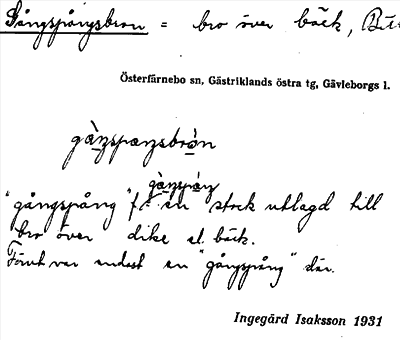 Gångspångsbron = bro över bäck,
Österfärnebo sn, Gästriklands östra tg, Gävleborgs l.
gàŋspaŋsbròn
gàŋspàŋ
"gångspång" f.: en stock utlagd till
bro över dike el. bäck.
Förut var endast en "gångspång" där.
Ingegärd Isaksson 1931